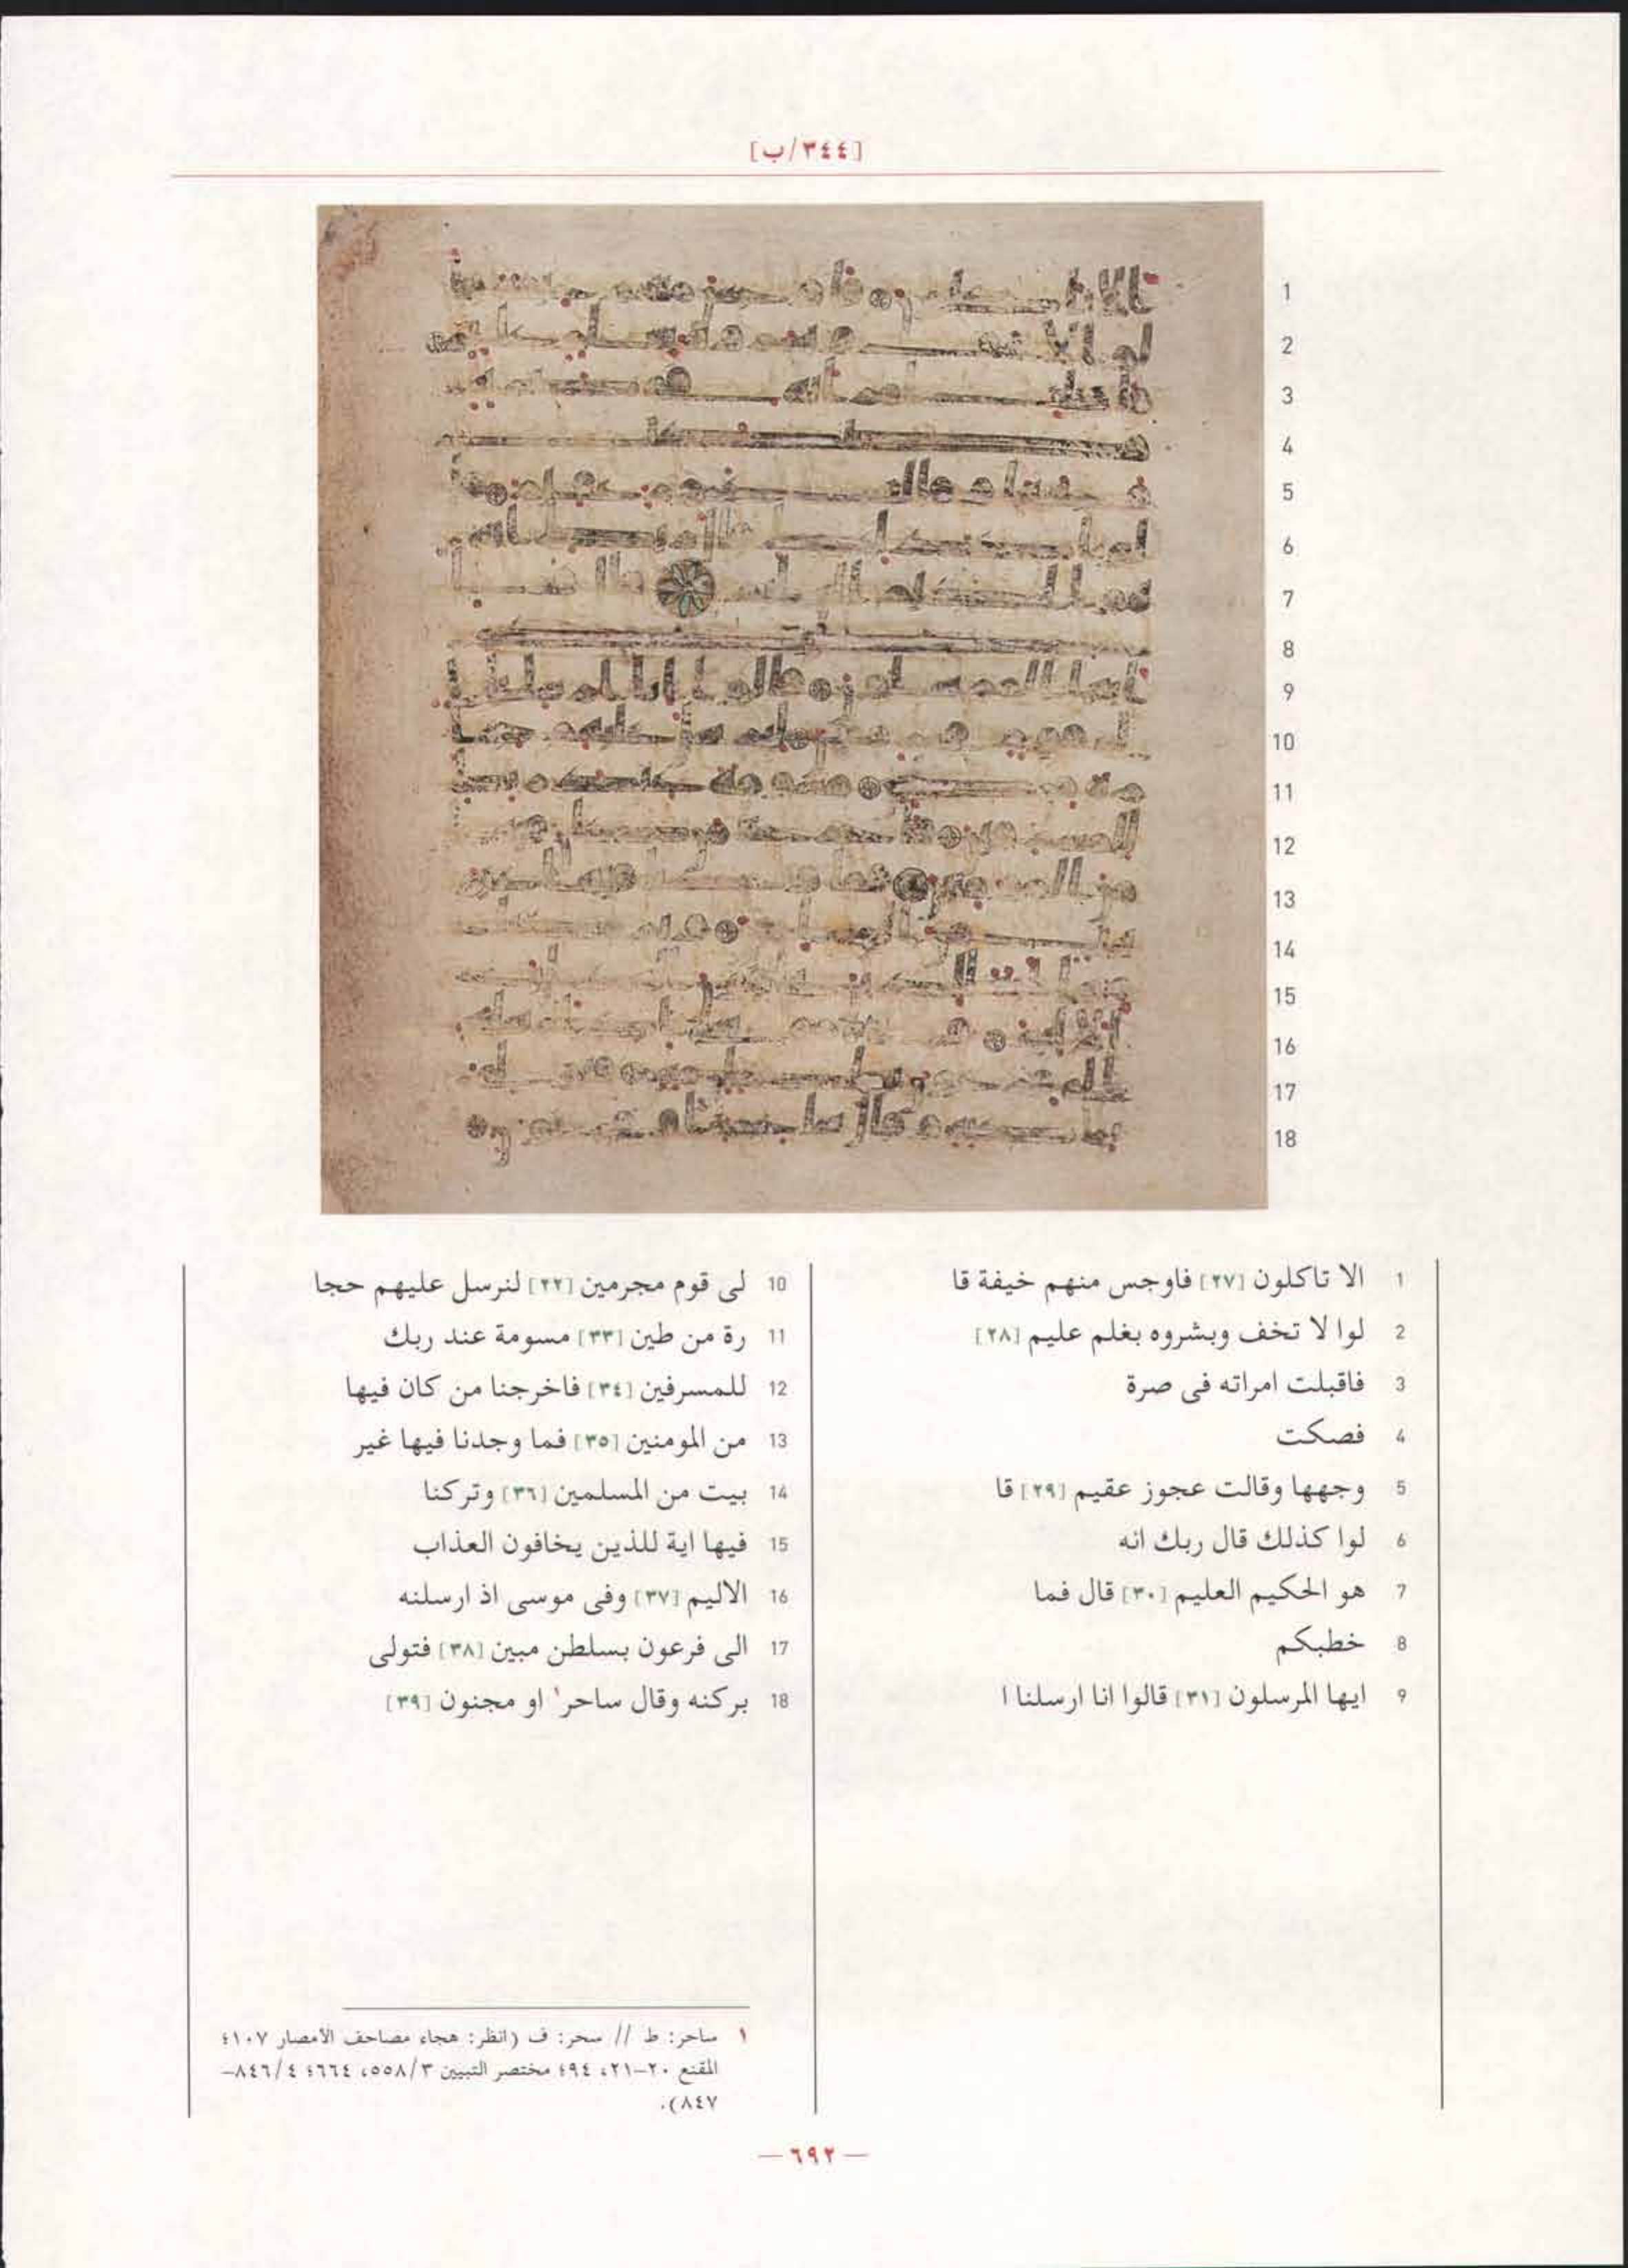 [٣٤٤/ب]
1
2
3
4
5
6
7
8
9
10
11
12
13
14
15
16
17
18
1 الا تاكلون [٢٧] فاوجس منهم خيفة قا
2 لوا لا تخف وبشروه بغلم عليم [٢٨]
3 فاقبلت امراته فى صرة
4 فصكت
5 وجهها وقالت عجوز عقيم [٢٩] قا
6 لوا كذلك قال ربك انه
7 هو الحكيم العليم [٣٠] قال فما
8 خطبكم
9 ايها المرسلون [٣١] قالوا انا ارسلنا ا
10 لى قوم مجرمين [٢٢] لنرسل عليهم حجا
11 رة من طين [٣٣] مسومة عند ربك
12 للمسرفين [٣٤] فاخرجنا من كان فيها
13 من المومنين [٣٥] فما وجدنا فيها غير
14 بيت من المسلمين [٣٦] وتركنا
15 فيها اية للذين يخافون العذاب
16 الاليم [٣٧] وفى موسى اذ ارسلنه
17 الى فرعون بسلطن مبين [٣٨] فتولى
18 بركنه وقال ساحر١ او مجنون [٣٩]
١ ساحر: ط // سحر: ف (انظر: هجاء مصاحف الأمصار ١٠٧؛
المقنع ٢٠-٢١، ٩٤؛ مختصر التبيين ٥٥٨/٣، ٦٦٤؛ ٨٤٦/٤-
٨٤٧).
— ٦٩٢ —